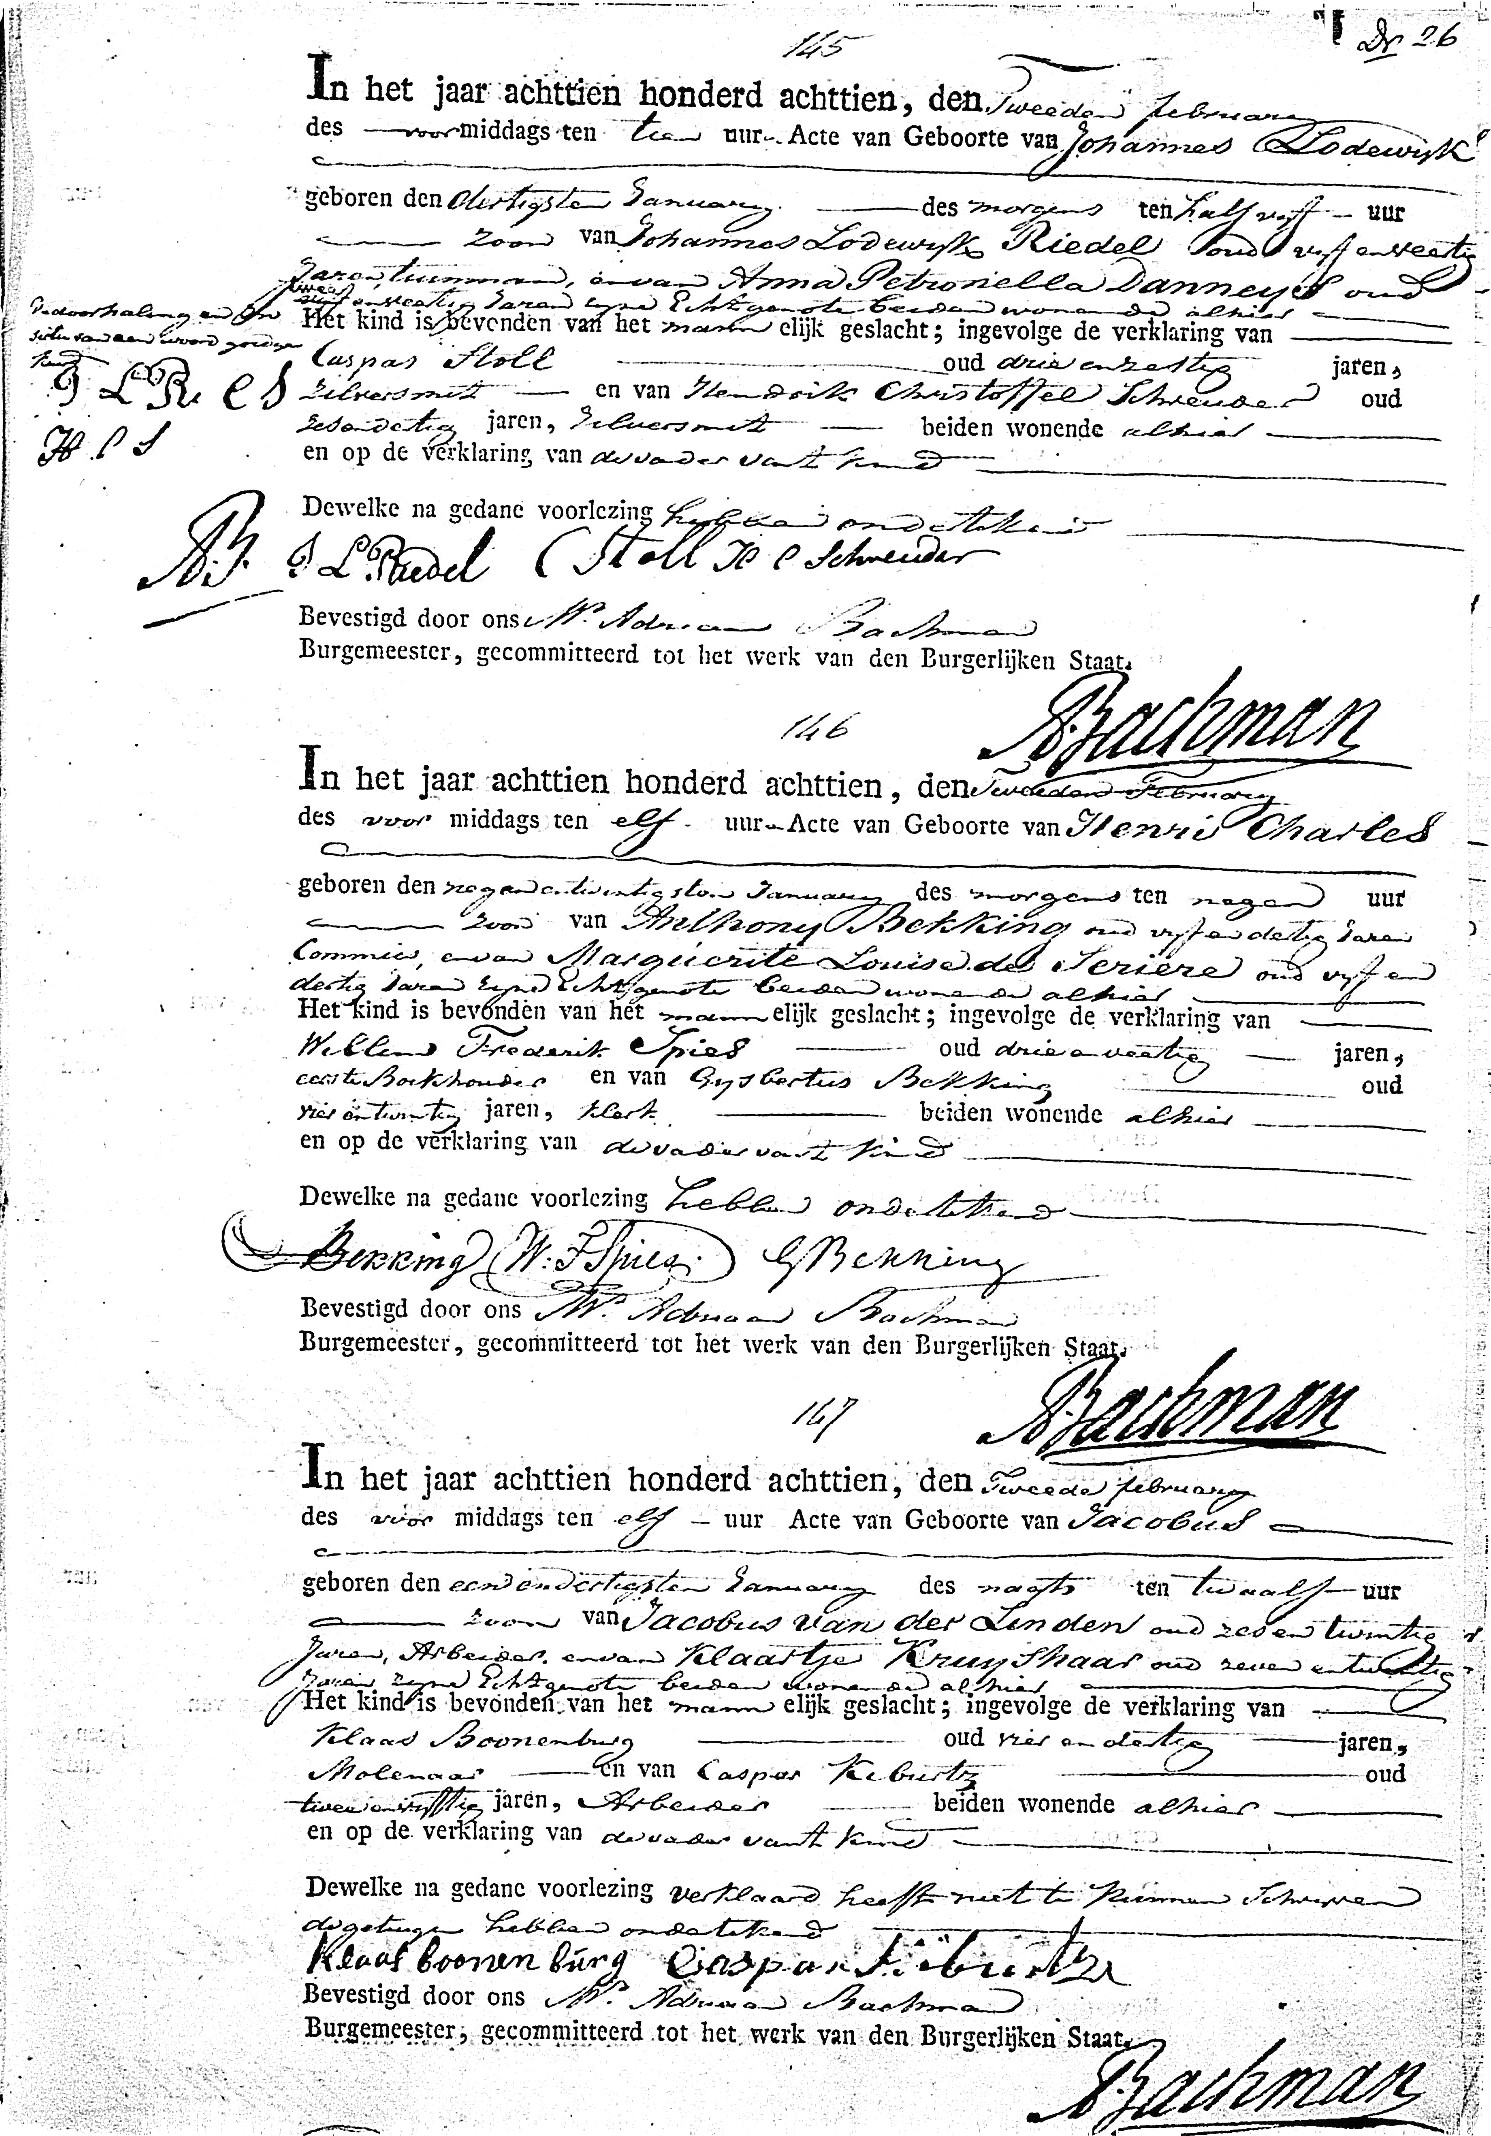 Dr 26
145
In het jaar achttien honderd achttien, den Tweeden february
des voormiddags ten tien uur. Acte van Geboorte van Johannes Lodewijk
geboren den dertigsten January des morgens ten half vyf uur
zoon van Johannes Lodewijk Riedel oud vyf en veertig
Jaren, tuinman, en van Anna Petronella Danneys oud
twee
vyf en veertig Jaren zyne Echtgenote beiden wonende alhier
Het kind is bevonden van het mannelijk geslacht; ingevolge de verklaring van
Caspar Stoll oud drie en zestig jaren,
zilversmit en van Hendrik Christoffel Schreuder oud
zes en dertig jaren, zilversmit beiden wonende alhier
en op de verklaring van de vader van 't kind
Dewelke na gedane voorlezing hebben ondertekend
De doorhaling en
van een woord goedge
keurd
J L R C S
H C S
AB. J L Riedel C Stoll H C Schreuder
Bevestigd door ons Mr. Adriaan Bachman
Burgemeester, gecommitteerd tot het werk van den Burgerlijken Staat.
ABachman
146
In het jaar achttien honderd achttien, den Tweeden February
des voor middags ten elf uur. Acte van Geboorte van Henri Charles
geboren den negen en twintigsten January des morgens ten negen uur
zoon van Anthony Bekking oud vyf en dertig Jaren
Commies, en van Marguerite Louise de Seriere oud vyf en
dertig Jaren zyne Echtgenote beiden wonende alhier
Het kind is bevonden van het mannelijk geslacht; ingevolge de verklaring van
Willem Frederik Spies oud drie en veertig jaren,
eerste Boekhouder en van Gysbertus Bekking oud
vier en twintig jaren, klerk beiden wonende alhier
en op de verklaring van de vader van 't kind
Dewelke na gedane voorlezing hebben ondertekend
Bekking W: F Spies. G Bekking
Bevestigd door ons Mr. Adriaan Bachman
Burgemeester, gecommitteerd tot het werk van den Burgerlijken Staat.
ABachman
147
In het jaar achttien honderd achttien, den Tweede february
des voor middags ten elf uur Acte van Geboorte van Jacobus
geboren den een en dertigsten January des nagts ten twaalf uur
zoon van Jacobus van der Linden oud zes en twintig
Jaren, Arbeider, en van Klaartje Kruyshaar oud zeven en twintig
Jaren, zyne Echtgenote beiden wonende alhier
Het kind is bevonden van het mannelijk geslacht; ingevolge de verklaring van
Klaas Boonenburg oud vier en dertig jaren,
Molenaar en van Caspar Keburtz oud
twee en vyftig jaren, Arbeider beiden wonende alhier
en op de verklaring van de vader van 't kind
Dewelke na gedane voorlezing verklaard heeft niet te kunnen Schryven
de getuigen hebben ondertekend
Klaas boonenburg Caspar Kieburtz
Bevestigd door ons Mr. Adriaan Bachman
Burgemeester, gecommitteerd tot het werk van den Burgerlijken Staat.
ABachman